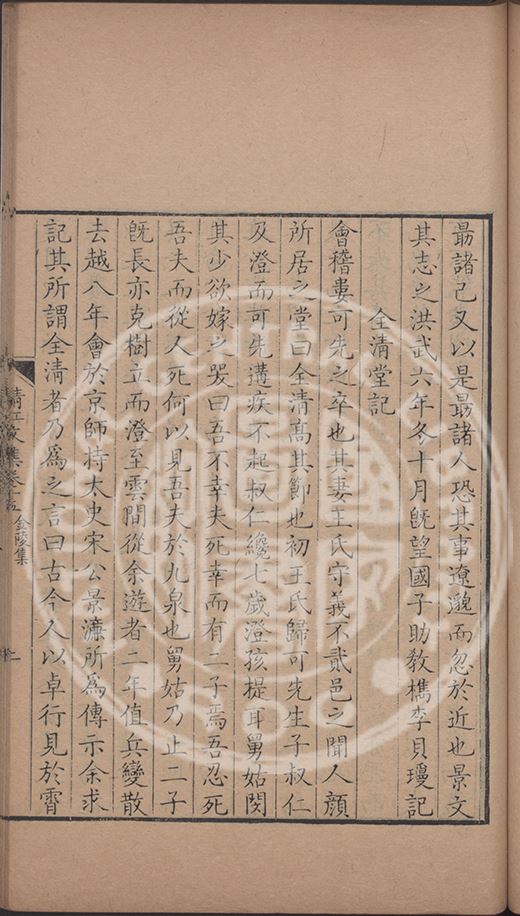 最諸己又以是最諸人恐其事遼邈而忽於近也景文
其志之洪武六年冬十月既望國子助教檇李貝瓊記
全清堂記
會稽婁可先之卒也其妻王氏守義不貳邑之聞人顔
所居之堂曰全清高其節也初王氏歸可先生子叔仁
及澄而可先遘疾不起叔仁纔七歲澄孩提耳舅姑閔
其少欲嫁之哭曰吾不幸夫死幸而有二子焉吾忍死
吾夫而從人死何以見吾夫於九泉也舅姑乃止二子
既長亦克樹立而澄至雲間從余遊者二年值兵變散
去越八年會於京師持太史宋公景濂所爲傳示余求
記其所謂全清者乃爲之言曰古今人以卓行見於霄
清江文集卷十五 金陵集